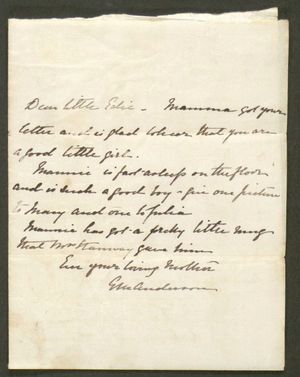 Dear little Edie - Mamma got your
letter and is glad to hear that you are
a good little girl.
Mannie is fast asleep on the floor
and is such a good boy - give one picture
to Mary and one to Julia
Mannie has got a pretty little mug
that Mrs Stanway gave him
Ever your loving Mother
Anderson